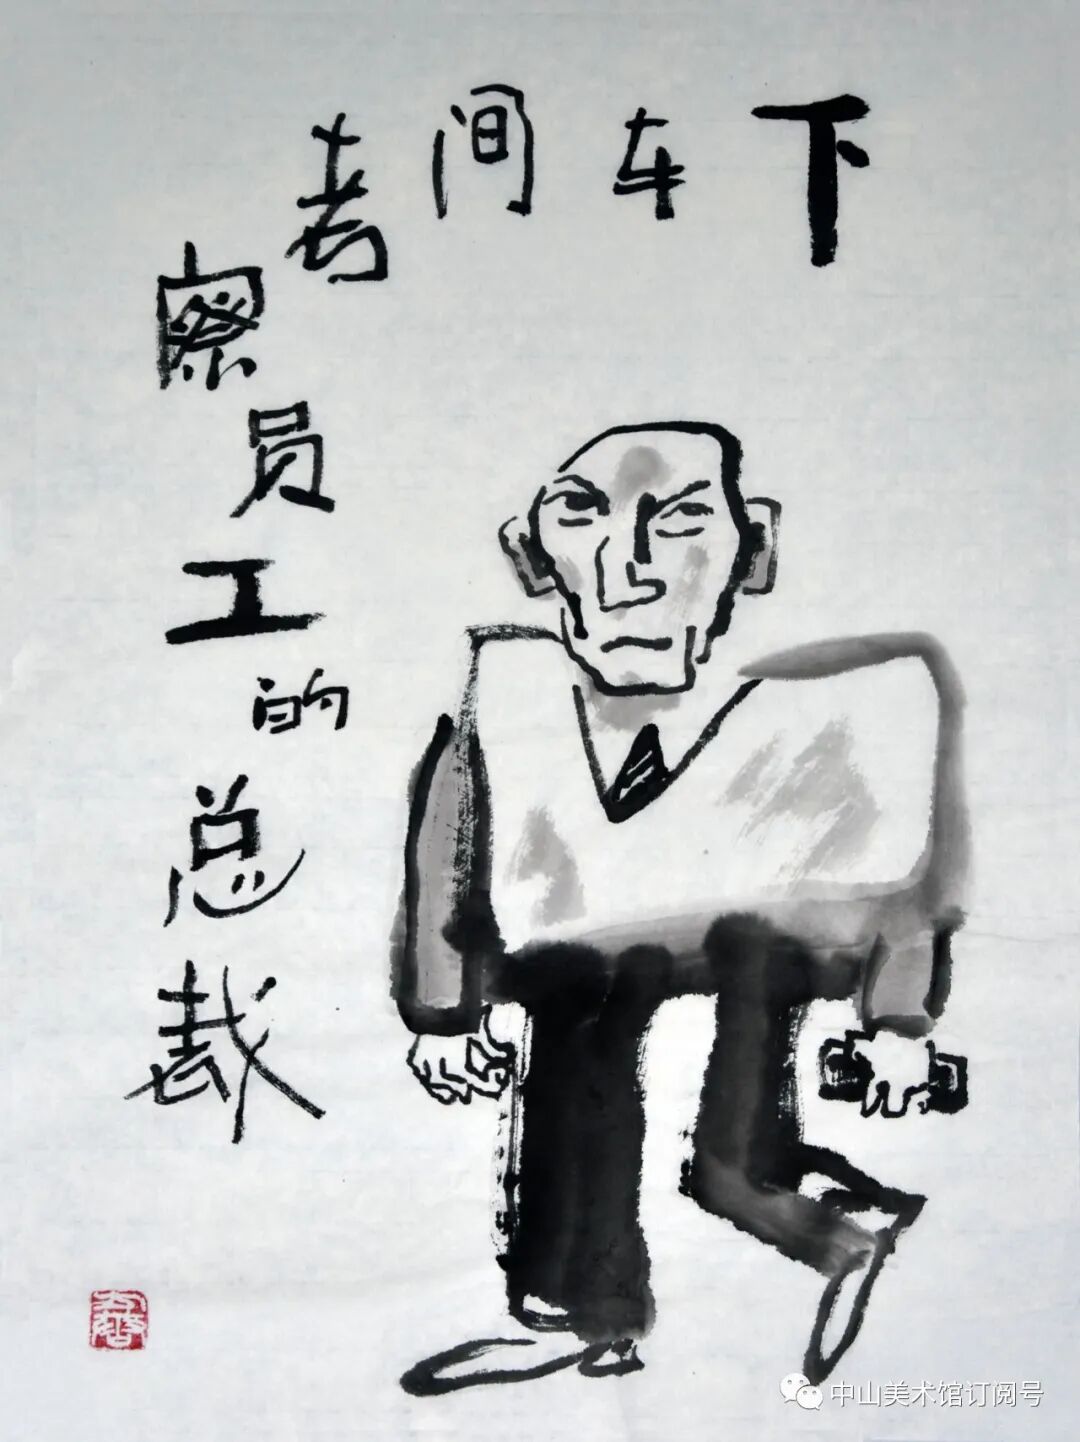 下车间考察员工的总裁
中山美术馆订阅号